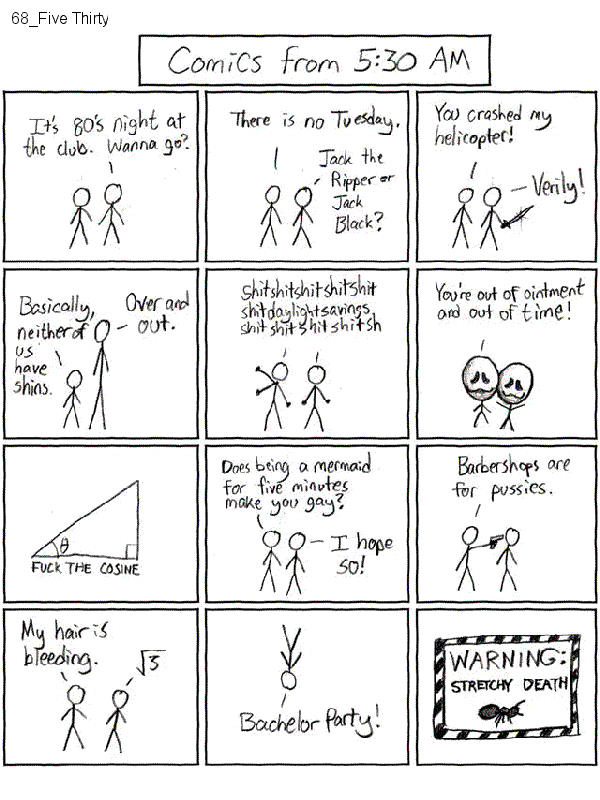 68_Five Thirty
Comics from 5:30 AM
It's 80's night at
the club. Wanna go?
There is no Tuesday.
Jack the
Ripper or
Jack
Black?
You crashed my
helicopter!
Verily!
Basically,
neither of
us
have
shins.
Over and
out.
Shitshitshitshitshit
shitdaylightsavings
shitshitshitshitsh
You're out of ointment
and out of time!
θ
FUCK THE COSINE
Does being a mermaid
for five minutes
make you gay?
I hope
so!
Barbershops are
for pussies.
My hair is
bleeding.
√3
Bachelor Party!
WARNING:
STRETCHY DEATH